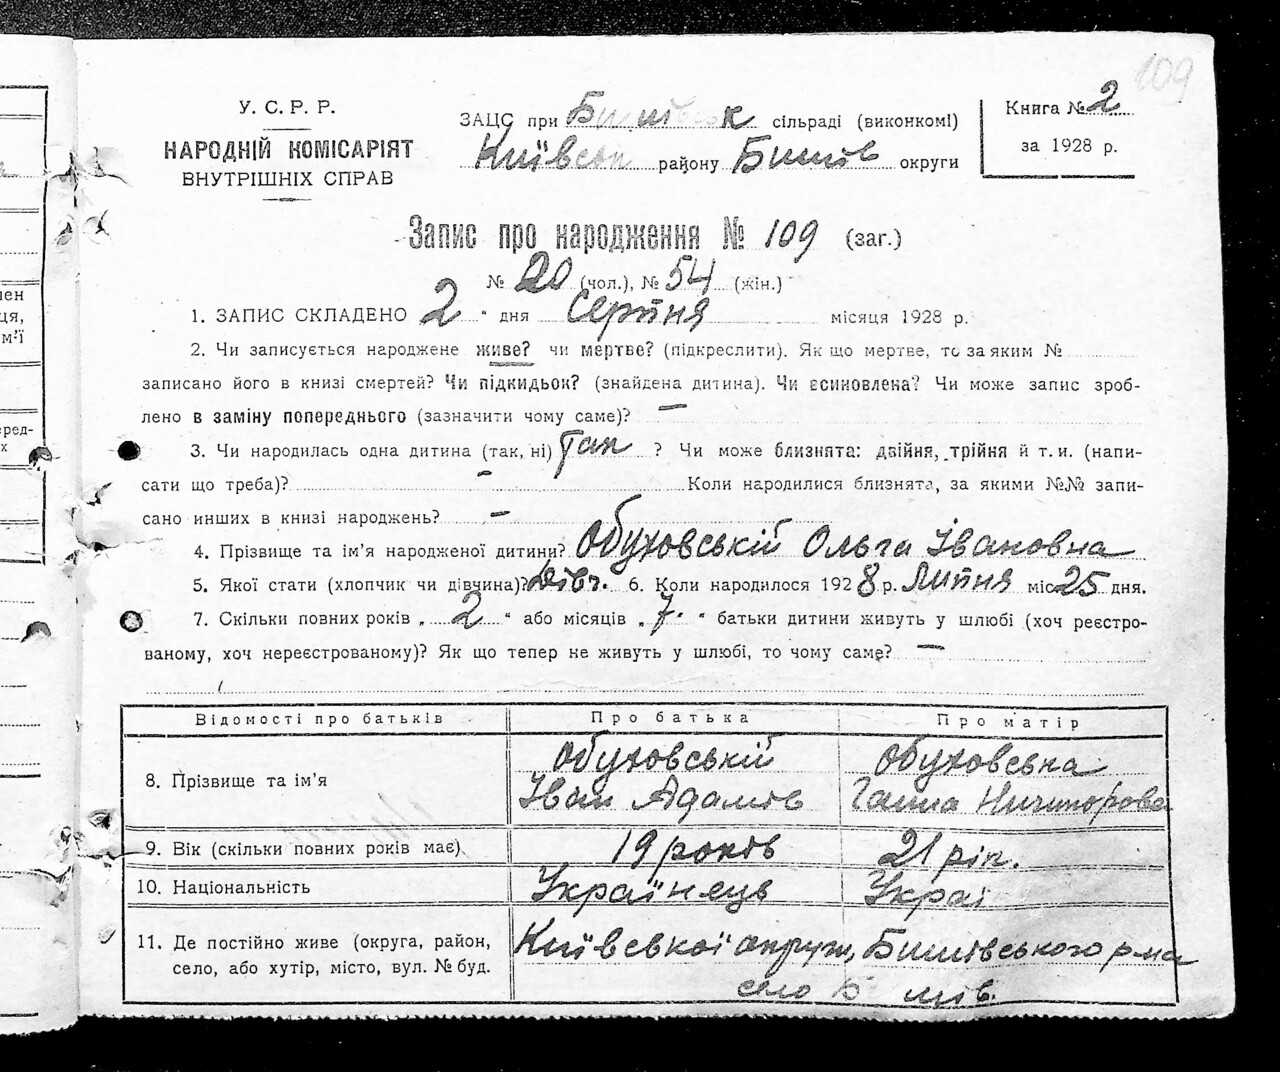 109
У. С. Р. Р.
НАРОДНІЙ КОМІСАРІЯТ
ВНУТРІШНІХ СПРАВ
ЗАЦС при Бишівськ сільраді (виконкомі)
Київськ району Бишів округи
Книга № 2
за 1928 р.
Запис про народження № 109 (заг.)
№ 20 (чол.), № 54 (жін.)
1. ЗАПИС СКЛАДЕНО 2 " дня Серпня місяця 1928 р.
2. Чи записується народжене живе? чи мертве? (підкреслити). Як що мертве, то за яким №
записано його в книзі смертей? Чи підкидьок? (знайдена дитина). Чи всиновлена? Чи може запис зроб-
лено в заміну попереднього (зазначити чому саме)? —
3. Чи народилась одна дитина (так, ні) Так ? Чи може близнята: двійня, трійня й т. и. (напи-
сати що треба)? — Коли народилися близнята, за якими №№ запи-
сано инших в книзі народжень? —
4. Прізвище та ім'я народженої дитини? Обуховській Ольга Івановна
5. Якої стати (хлопчик чи дівчина)? Дівч. 6. Коли народилося 1928 р. Липня міс 25 дня.
7. Скільки повних років „ 2 " або місяців „ 7 " батьки дитини живуть у шлюбі (хоч реєстро-
ваному, хоч нереєстрованому)? Як що тепер не живуть у шлюбі, то чому саме? —
Відомості про батьків Про батька Про матір
8. Прізвище та ім'я Обуховській Обуховсьна
Іван Адамів Ганна Ничипорова
9. Вік (скільки повних років має) 19 років 21 рік.
10. Національність Українець Украі
11. Де постійно живе (округа, район, Київської округи, Бишівського р-на
село, або хутір, місто, вул. № буд. село Б шів.
мен
ця,
м'ї
еред-
х